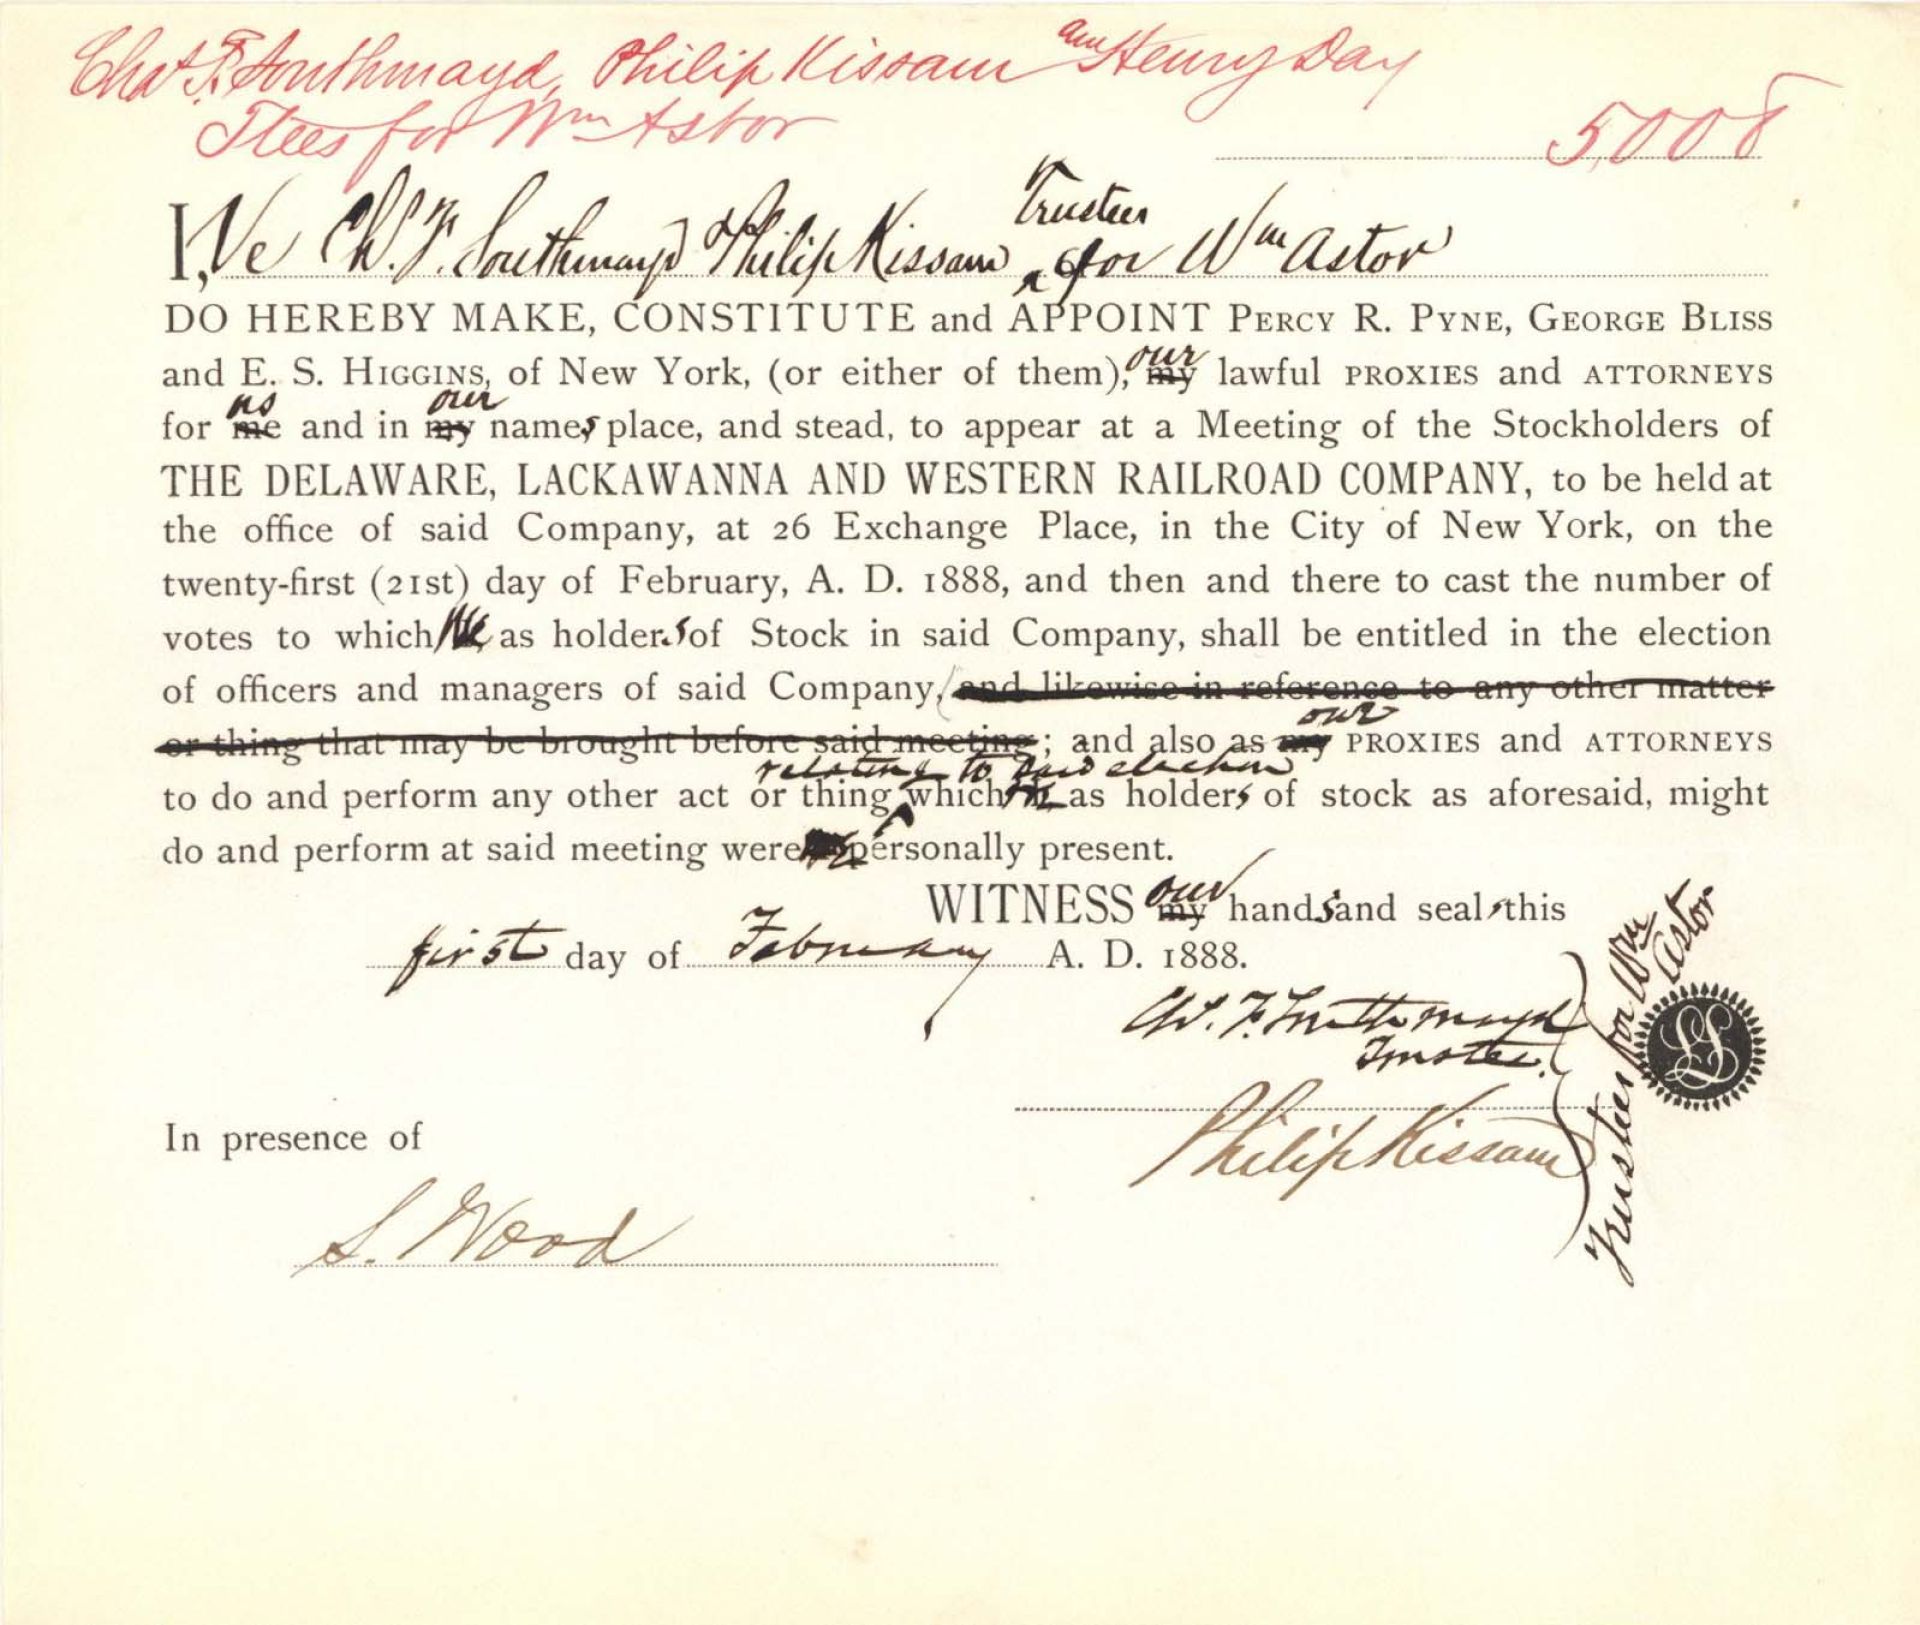 Chas F. Southmayd, Philip Kissam and Henry Day
Tees for Wm Astor
5,008
I, We Ch. F. Southmayd Philip Kissam Trustees for Wm Astor
DO HEREBY MAKE, CONSTITUTE and APPOINT PERCY R. PYNE, GEORGE BLISS
and E. S. HIGGINS, of New York, (or either of them), our my lawful PROXIES and ATTORNEYS
for us me and in our my names place, and stead, to appear at a Meeting of the Stockholders of
THE DELAWARE, LACKAWANNA AND WESTERN RAILROAD COMPANY, to be held at
the office of said Company, at 26 Exchange Place, in the City of New York, on the
twenty-first (21st) day of February, A. D. 1888, and then and there to cast the number of
votes to which We as holders of Stock in said Company, shall be entitled in the election
of officers and managers of said Company, and likewise in reference to any other matter
or thing that may be brought before said meeting; and also as our my PROXIES and ATTORNEYS
relating to said election
to do and perform any other act or thing which we as holders of stock as aforesaid, might
do and perform at said meeting were we personally present.
WITNESS our my hands and seals this
first day of February A. D. 1888.
Ch. F. Southmayd
Trustee.
Philip Kissam
Trustees for Wm Astor
LS
In presence of
S. Wood